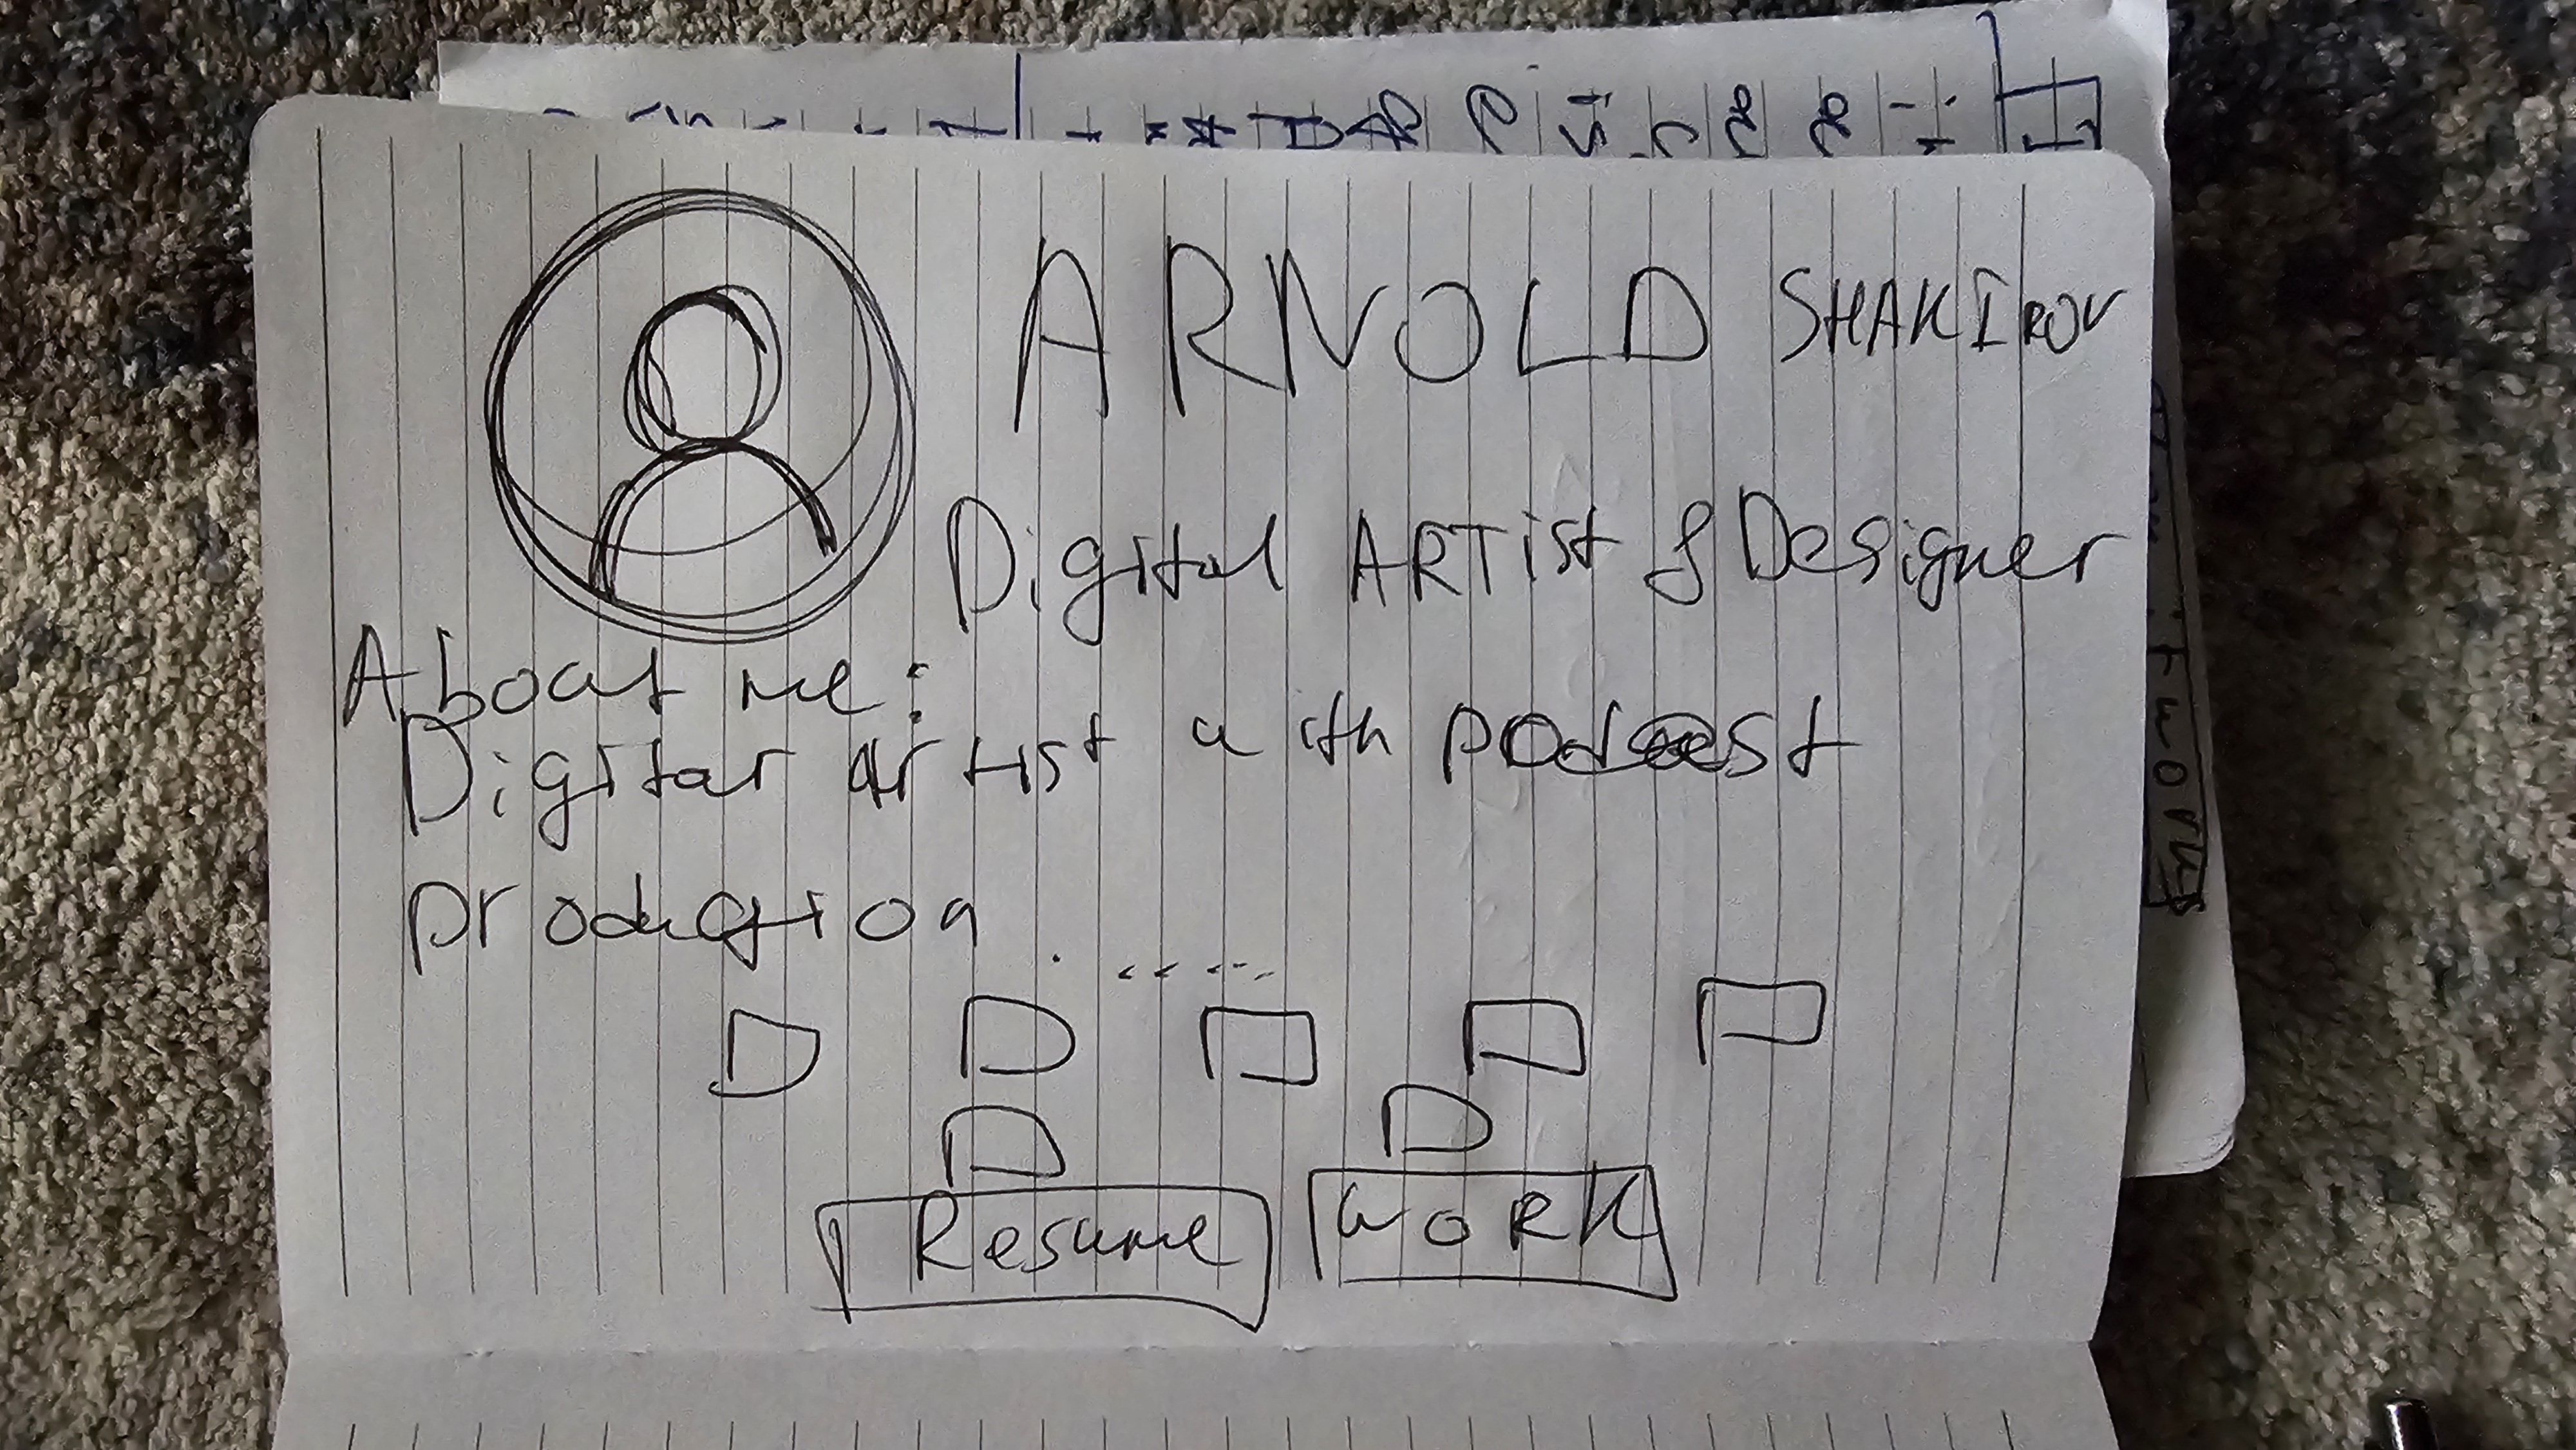 ARNOLD SHAKIROV
Digital ARTist & Designer
About me:
Digital artist with podcast
production
Resume
WORK